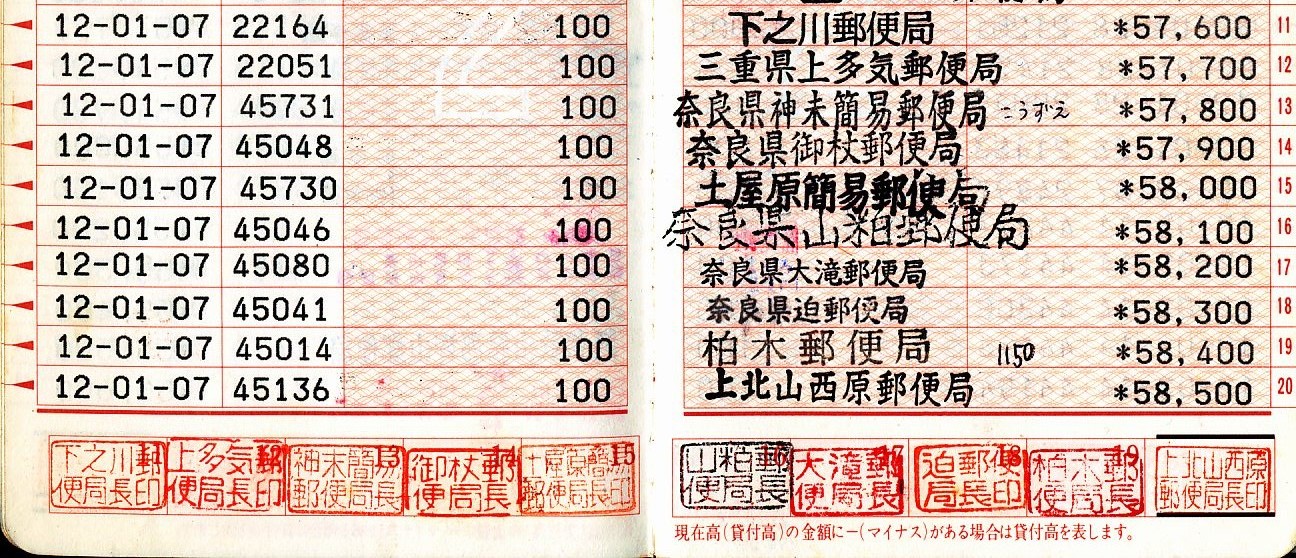 12-01-07 22164 100 下之川郵便局 *57,600 11
12-01-07 22051 100 三重県上多気郵便局 *57,700 12
12-01-07 45731 100 奈良県神末簡易郵便局 こうずえ *57,800 13
12-01-07 45048 100 奈良県御杖郵便局 *57,900 14
12-01-07 45730 100 土屋原簡易郵便局 *58,000 15
12-01-07 45046 100 奈良県山粕郵便局 *58,100 16
12-01-07 45080 100 奈良県大滝郵便局 *58,200 17
12-01-07 45041 100 奈良県迫郵便局 *58,300 18
12-01-07 45014 100 柏木郵便局 1150 *58,400 19
12-01-07 45136 100 上北山西原郵便局 *58,500 20
下之川郵便局長印 11
上多気郵便局長印 12
神末簡易郵便局長 13
御杖郵便局長 14
土屋原簡易郵便局長印 15
山粕郵便局長
大滝郵便局長 17
迫郵便局長印 18
柏木郵便局長 19
上北山西原郵便局長印
現在高(貸付高)の金額に−(マイナス)がある場合は貸付高を表します。